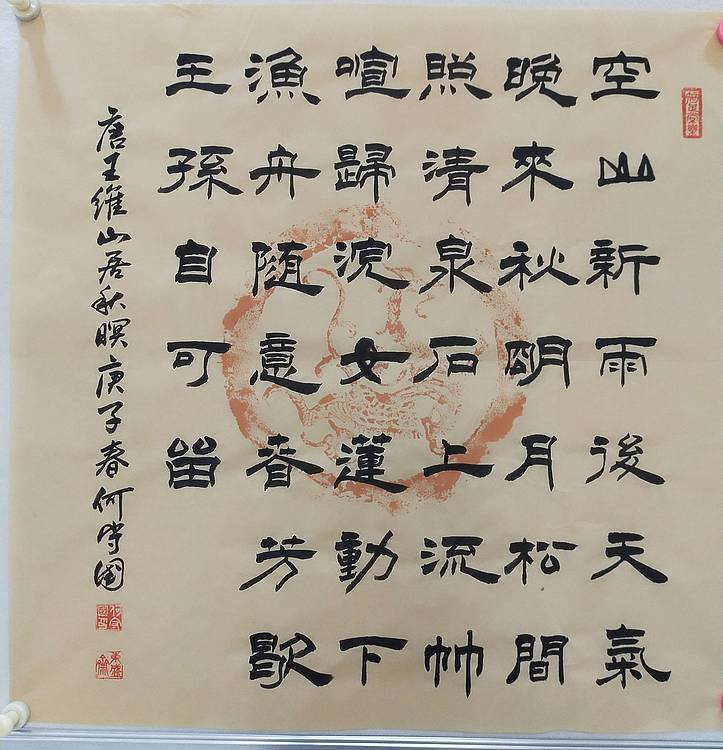 空山新雨後天氣
晚來秋明月松間
照清泉石上流竹
喧歸浣女蓮動下
漁舟随意春芳歇
王孫自可留
唐王維山居秋暝庚子春何守國